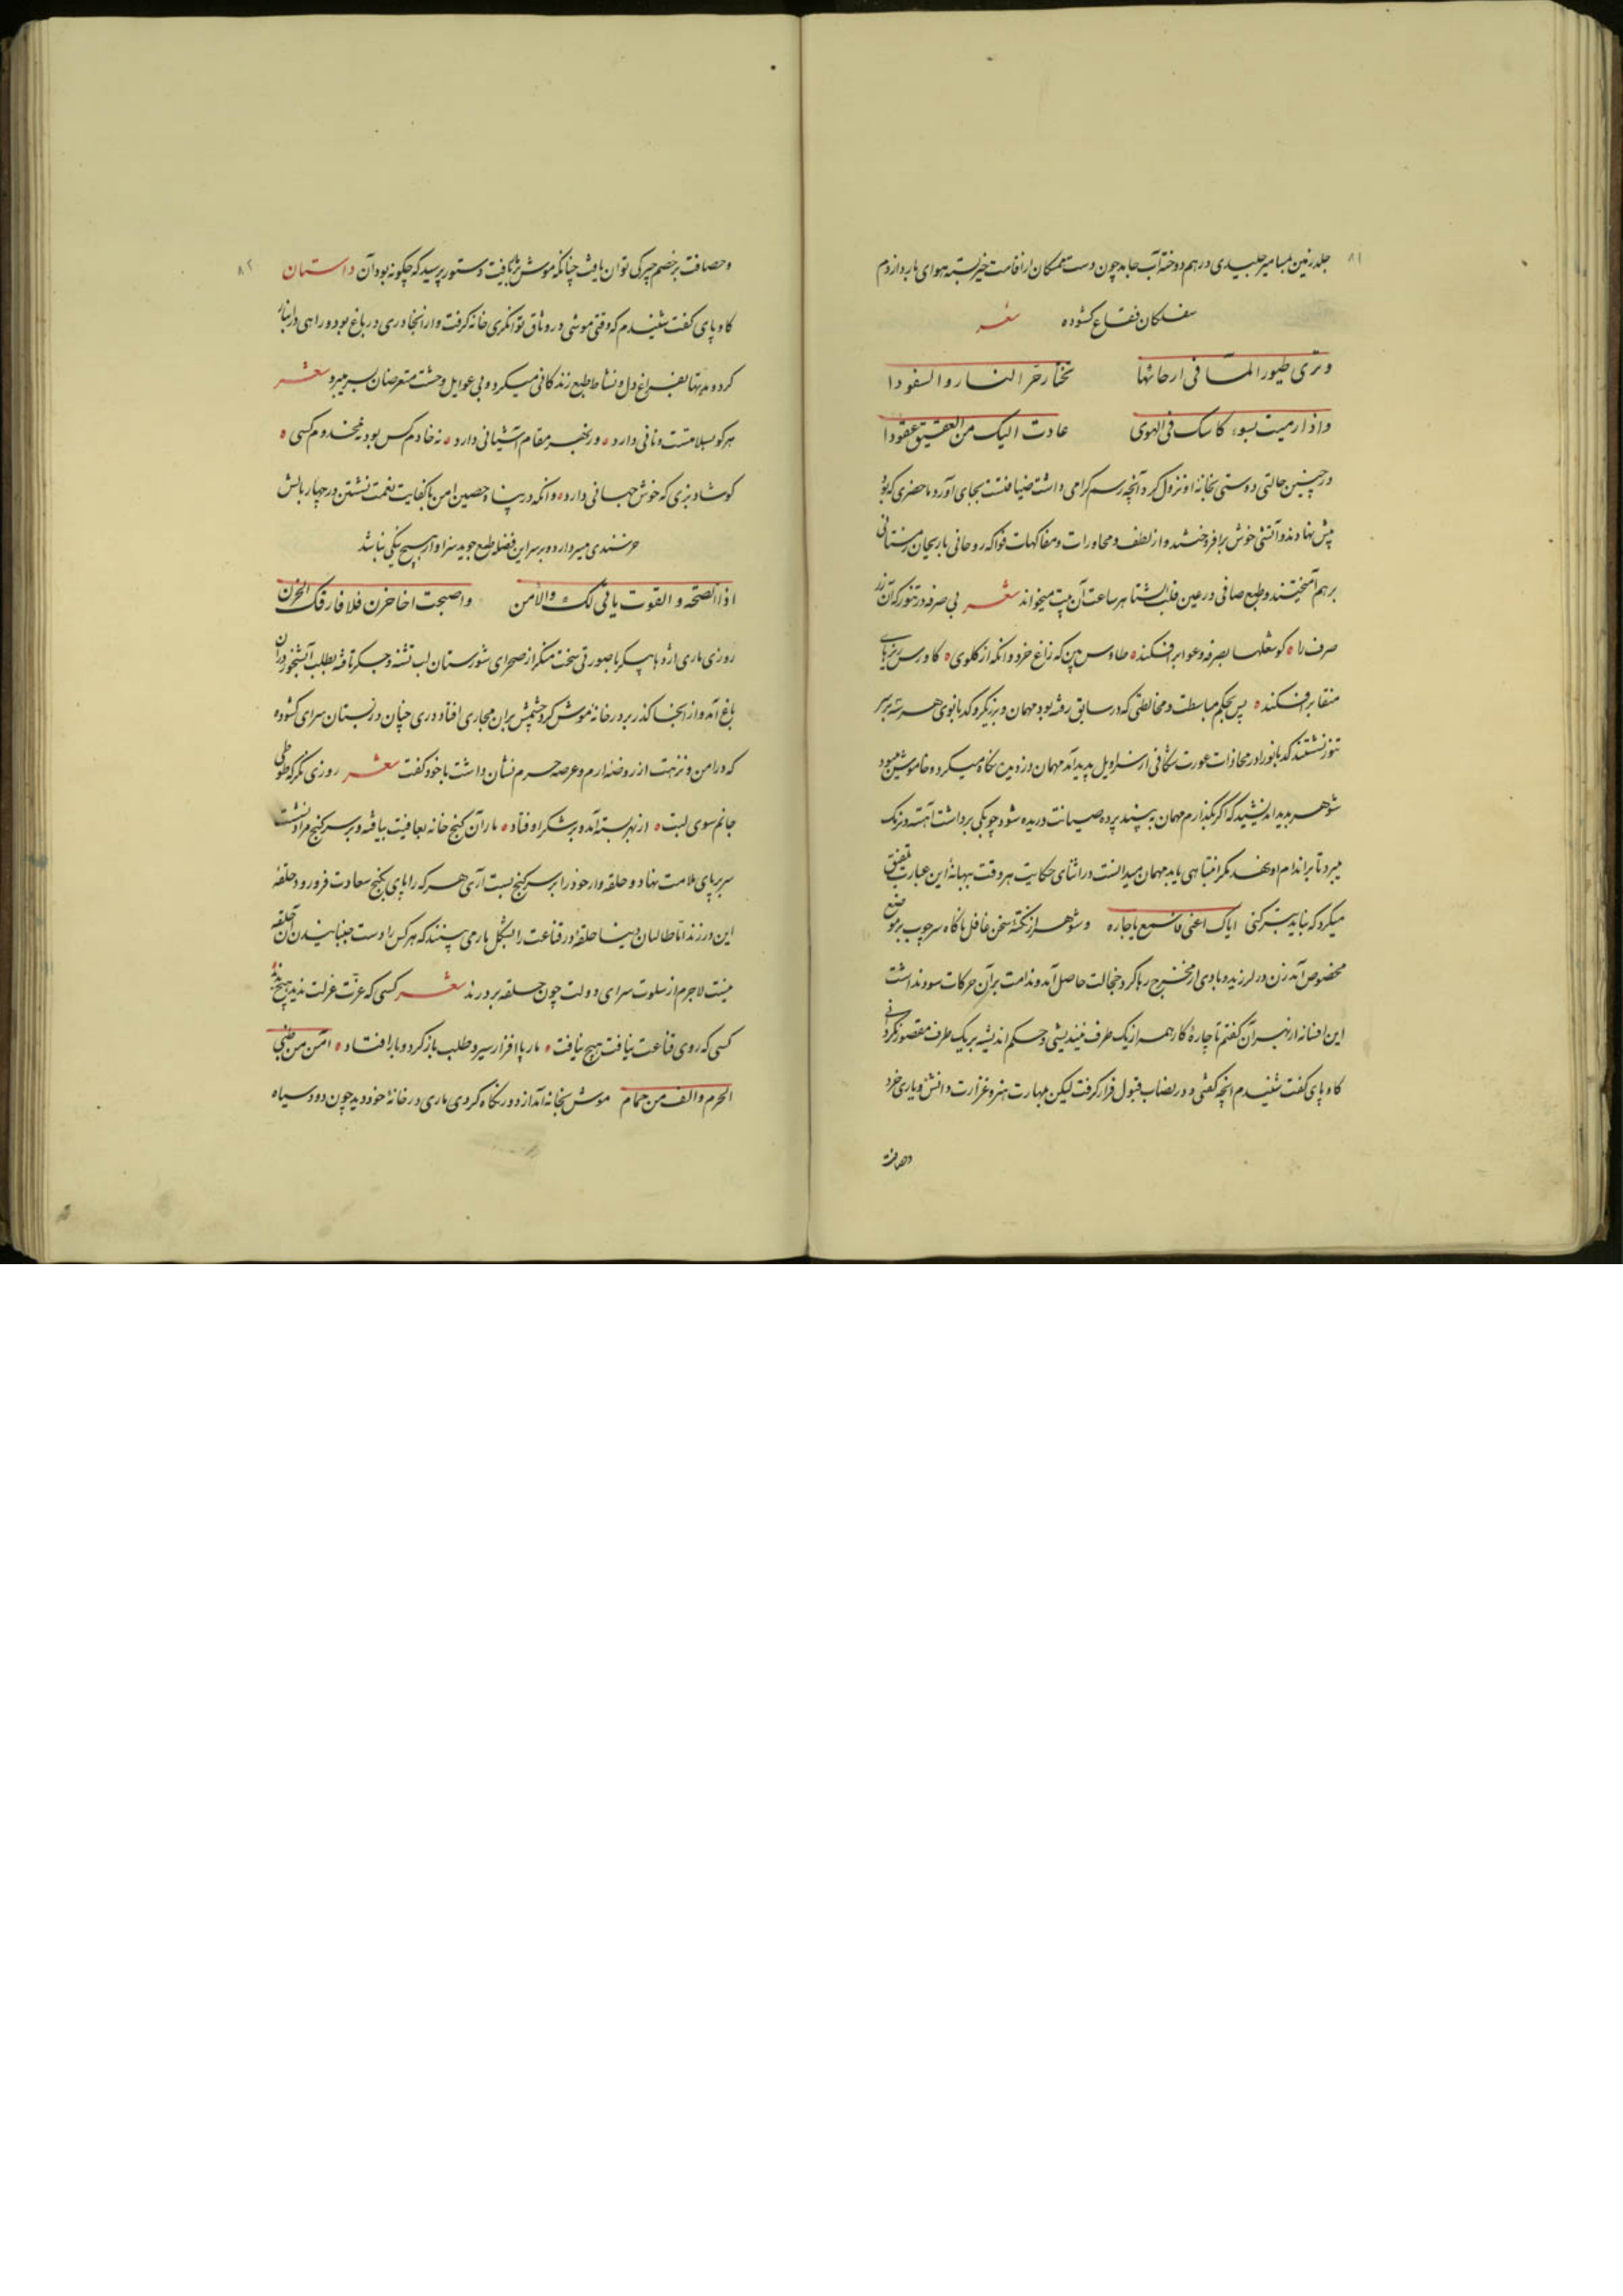 ۸۱
جلد زمین بمسامیر جلیدی در هم دوخته آب جامد چون دست ممسکان از اقامت خیر بسته هوای بارد از دم
سفلگان فقاع گشوده شعر
وتری طیور الماء فی ارجائها تختار حر النار والسفودا
واذا رمیت بسؤر کاسک فی الهوی عادت الیک من العقیق عقودا
در چنین حالتی دوستی بخانهٔ او نزول کرد آنچه رسم گرامی داشت ضیافتست بجای آورد ما حضری که بود
پیش نهادند و آتشی خوش برافروختند و از لطف و محاورات و مفاکهات فواکه روحانی با ریحان زمستانی
برهم آمیختند و طبع صافی در عین قلب الشتا هر ساعت آن بیت میخواند شعر بی صرفه در تنور کن آن زر
صرف را ه کو شعلها بصرفه و عوا برافکند ه طاوس بین که زاغ خورد و انکه از گلوی ه گاورس ریزهای
منقا برافکند ه پس بحکم مباسطت و مخالطتی که در سابق رفته بود مهمان و برزیگر و کدبانوی هر سه بر سر
تنور نشستند کدبانو را در محاذات عورت شکافی از سراویل پدید آمد مهمان دزدیده نگاه میکرد و خاموش میبود
شوهر بدید اندیشید که اگر بگذارم مهمان به بیند پرده صیانت دریده شود چوبکی برداشت آهسته و نزدیک
میبرد تا بر اندام او نهد مگر انتباهی یابد مهمان میدانست در اثنای حکایت هر وقت ببهانهٔ این عبارت تلفیق
میکرد که نباید بتر کنی ایاک اعنی فاسمع یا جاره و شوهر از نکته سخن غافل ناگاه سر چوب بر موضع
مخصوص آمد زن در لرزید و بادی از مخرج رها کرد خجالت حاصل آمد و ندامت بر آن حرکات سود نداشت
این افسانه از بهر آن گفتم تا چارهٔ کار همه از یک طرف نیندیشی و حکم اندیشه بر یک طرف مقصور نگردانی
کاوپای گفت شنیدم آنچه گفتی و در نصاب قبول قرار گرفت لیکن بمهارت هنر و غزارت دانش و یاری خرد
وحصافت
۸۲
وحصافت بر خصم چیرگی توان یافت چنانکه موش بر مار یافت دستور پرسید که چگونه بود آن داستان
کاوپای گفت شنیدم که وقتی موشی در وثاق توانگری خانه گرفت و از آنجا دری در باغ بود و راهی در انبار
کرد و مدتها بفراغ دل و نشاط طبع زندگانی میکرد و بی غوایل وحشت متعرضان بسر میبرد شعر
هر کو بسلامتست و نانی دارد ه وز بهر مقام آشیانی دارد ه نه خادم کس بود نه مخدوم کسی ه
گو شاد بزی که خوش جهانی دارد ه و انکه در پناه حصین امن با کفایت نعمت نشستن در چهار بالش
خرسندی میسر دارد و بر سر این فضله طمع جوید سزاوار هیچ نیکی نباشد
اذا الصحة والقوت باقی لک والأمن واصبحت اخا حزن فلا فارقک الحزن
روزی ماری اژدها پیکر با صورتی سخت منکر از صحرای شورستان لب تشنه و جگر تافته بطلب آبشخور در آن
باغ آمد و از آنجا گذر بر در خانهٔ موش کرد چشمش بر آن مجاری افتاد دری چنان در بستان سرای گشوده
که در امن و نزهت از روضهٔ ارم و عرصه حرم نشان داشت با خود گفت شعر روزی نگر که طوطی
جانم سوی لبت ه از بهر پسته آمد و بر شکر اوفتاد ه مار آن گنج خانه بعافیت بیافته و بر سر گنج مراد نشست
سر بر پای سلامت نهاد و حلقه وار خود را بر سر گنج بست آری هر که را پای بگنج سعادت فرو رود حلقه
این در زند اما طالبان دنیا حلقه در قناعت را بشکل مار می بینند که هر کس را دست جنبانیدن آن حلقه
نیست لاجرم از سلوت سرای دولت چون حلقه بر درند شعر کسی که عزت عزلت ندید هیچ ندید ه
کسی که روی قناعت نیافت هیچ نیافت ه مار پا افزار سیر و طلب باز کرد و بار افتاد ه آمن من ظبی
الحرم والف من حمام موش بخانه آمد از دور نگاه کرد وی ماری در خانهٔ خود دید چون دود سیاه